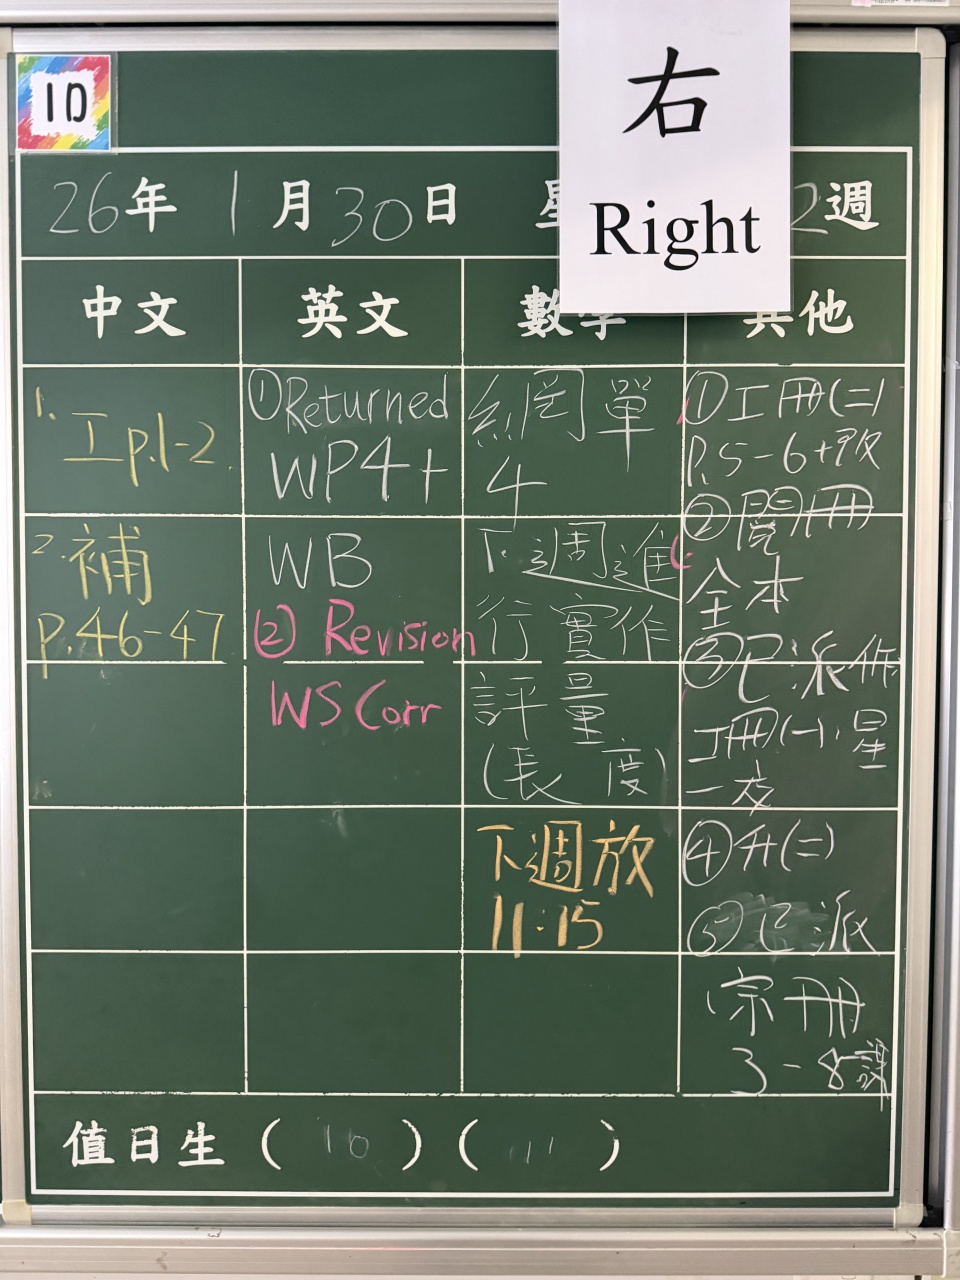 1D
右
Right
26年 1月30日 2週
中文 英文 數學 其他
1. 工p.1-2
2. 補
p.46-47
①Returned
WP4+
WB
② Revision
WS Corr
網單
4
下週進
行實作
評量
(長度)
下週放
11:15
①工冊(二)
P.5-6+改
②閱冊
全本
③已派作
工冊(一),星
一交
④升(二)
⑤已派
宗冊
3-8課
值日生 ( 10 ) ( 11 )